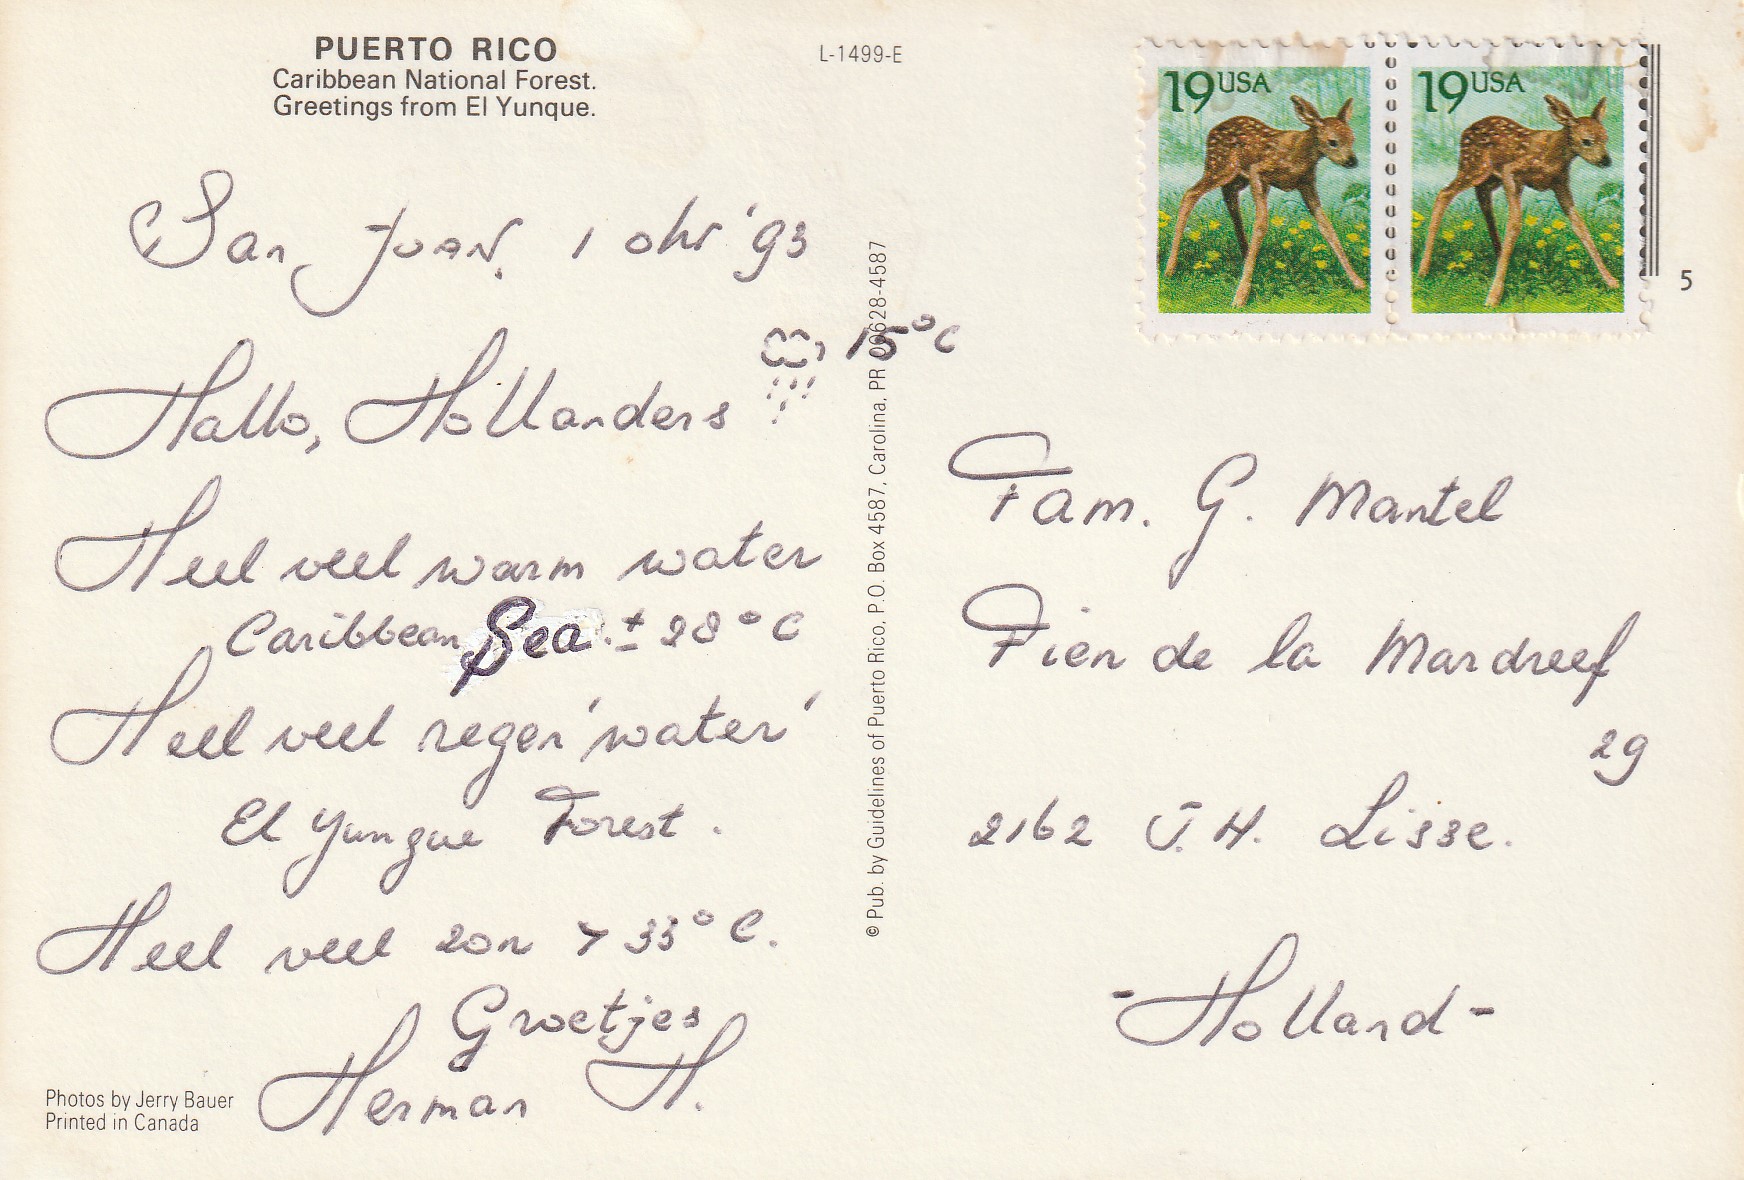 PUERTO RICO
Caribbean National Forest.
Greetings from El Yunque.
L-1499-E
19 USA
19 USA
5
San Juan, 1 okt '93
15°C
Hallo, Hollanders
Heel veel warm water
Caribbean Sea ± 28°C
Heel veel regen 'water'
El Yunque Forest.
Heel veel zon > 33°C.
Groetjes
Herman H.
Photos by Jerry Bauer
Printed in Canada
© Pub. by Guidelines of Puerto Rico, P.O. Box 4587, Carolina, PR 00628-4587
Fam. G. Mantel
Fien de la Mardreef
29
2162 J.H. Lisse.
-Holland-